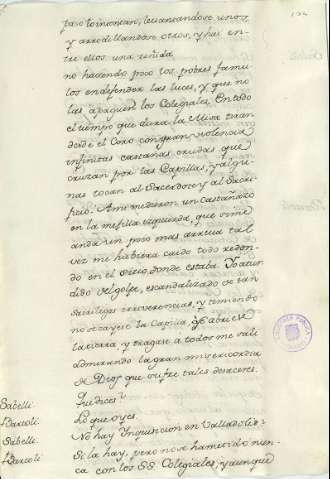 paso lo intentan, levantandose unos,
y arrodillandose otros, y hai en-
tre ellos una reñida
no haciendo poco los pobres famu-
los en defender las luces, y q.e no
las apaguen los Colegiales. En todo
el tiempo que dura la Misa tiran
desde el Coro con gran violencia
infinitas castañas crudas que
cruzan por las Capillas, y algu-
nas tocan al Sacerdote y al Sacri-
ficio. A mi me dieron un castañazo
en la mejilla izquierda, que si me
anda un poco mas arriva tal
vez me hubiera caido todo redon-
do en el sitio donde estaba. Yo atur-
dido del golpe, escandalizado de tan
sacrilegas irreverencias, y temiendo
no se cayese la Capilla, abriese
la tierra y tragase a todos me sali
admirando la gran misericordia
de Dios que sufre tales desaceres.
Sabelli. Que dices?
Bartoli. Lo que oyes.
Sabelli. No hay Inquisicion en Valladolid?
Bartoli. Si la hay, pero no se ha metido nun-
ca con los SS. Colegiales, y aunque